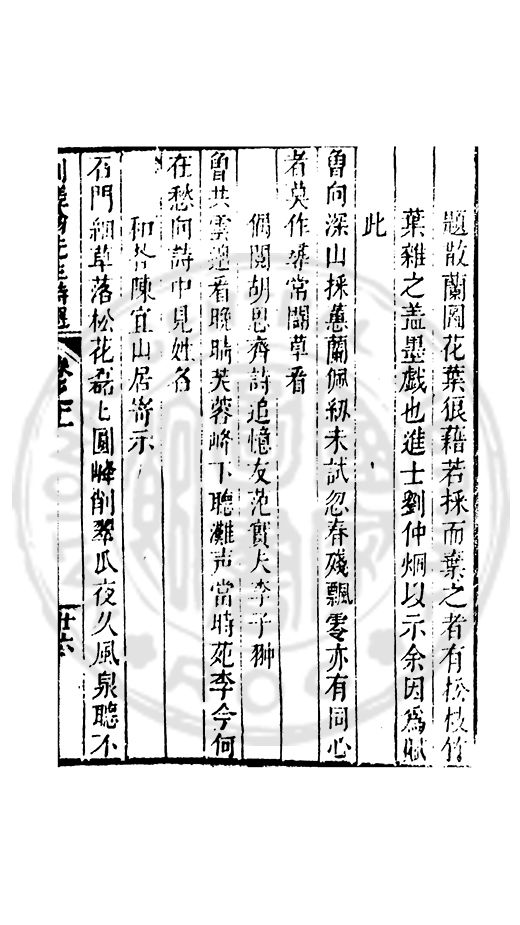 題散蘭圖花葉狼藉若採而棄之者有松枝竹
葉雜之盖墨戲也進士劉仲烱以示余因爲賦
此
曾向深山採蕙蘭佩紉未試忽春殘飄零亦有同心
者莫作尋常鬪草看
偶閱胡思齊詩追憶友范實夫李子翀
曾共雲邊看晚晴芙蓉峰下聽灘声當時范李今何
在愁向詩中見姓名
和答陳宜山居寄示
石門細草落松花磊上圓峰削翠瓜夜久風泉聽不
先生詩選
廿六